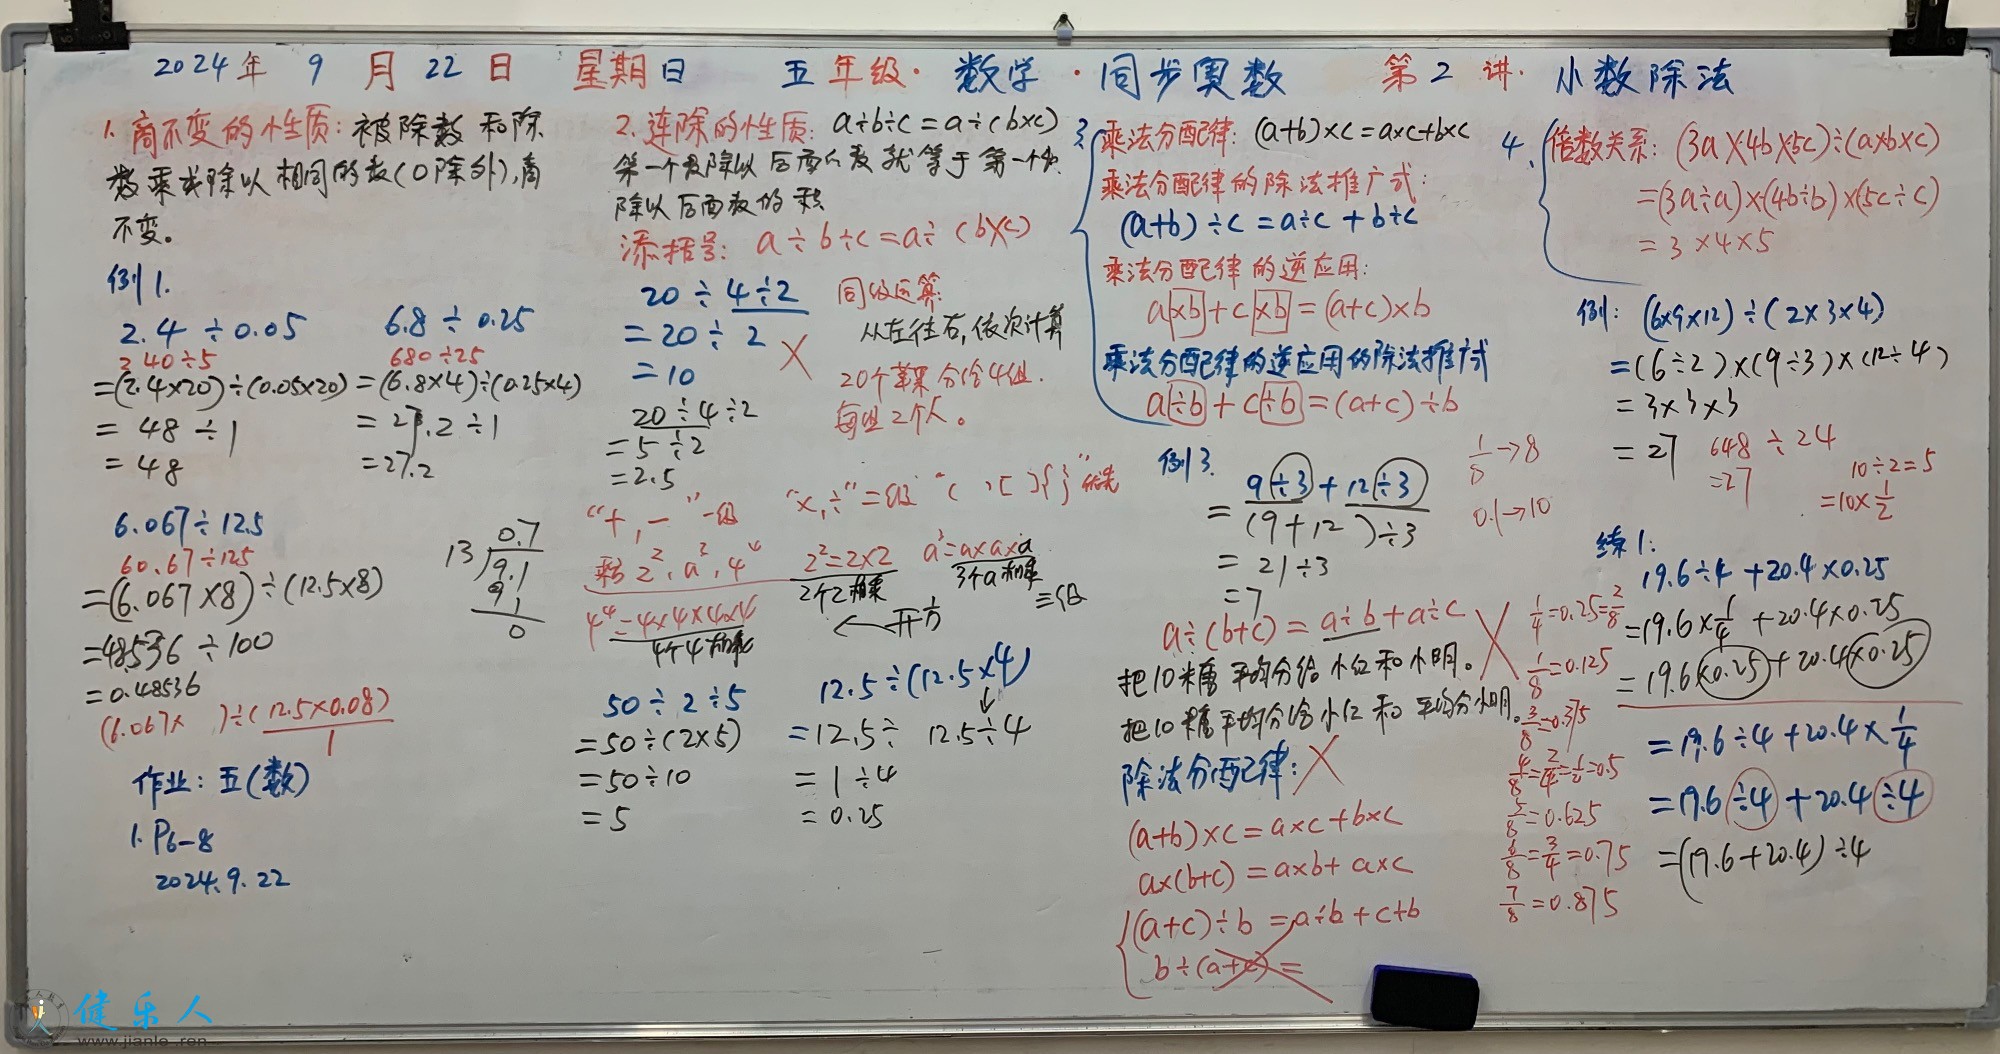 2024年 9 月 22 日 星期日 五年级·数学·同步奥数 第2讲·小数除法
1. 商不变的性质: 被除数和除
数乘或除以相同的数(0除外),商
不变。
例1.
2.4 ÷ 0.05
240÷5
=(2.4×20)÷(0.05×20)
= 48 ÷ 1
= 48
6.8 ÷ 0.25
680÷25
=(6.8×4)÷(0.25×4)
= 27.2 ÷1
=27.2
6.067÷12.5
60.67÷125
=(6.067×8)÷(12.5×8)
=48.536 ÷100
=0.48536
(6.067× )÷(12.5×0.08)
1
0.7
13
9.1
9 1
0
作业: 五(数)
1. P6-8
2024.9.22
2. 连除的性质: a÷b÷c=a÷(b×c)
第一个数除以后面的数就等于第一个数
除以后面数的积
添括号: a÷b÷c=a÷(b×c)
20 ÷ 4÷2
=20÷ 2
=10
20÷4÷2
=5÷2
=2.5
同级运算:
从左往右,依次计算
20个苹果分给4组.
每组2个人。
"+,-"一级
"×,÷"=级
"( )[ ]{ }"优先
乘方 2²,a³,4⁴
2²=2×2
2个2相乘
a³=a×a×a
3个a相乘
三级
4⁴=4×4×4×4
4个4相乘
开方
50÷2÷5
=50÷(2×5)
=50÷10
=5
12.5÷(12.5×4)
=12.5÷ 12.5÷4
= 1÷4
= 0.25
3. 乘法分配律: (a+b)×c=a×c+b×c
乘法分配律的除法推广式:
(a+b)÷c=a÷c+b÷c
乘法分配律的逆应用:
a×b+c×b=(a+c)×b
乘法分配律的逆应用的除法推广式
a÷b+c÷b=(a+c)÷b
例3.
9÷3+12÷3
=(9+12)÷3
= 21÷3
=7
1/8→8
0.1→10
a÷(b+c)=a÷b+a÷c
把10糖平均分给小红和小明。
把10糖平均分给小红和平均分小明。
除法分配律:
(a+b)×c=a×c+b×c
a×(b+c)=a×b+a×c
(a+c)÷b=a÷b+c÷b
b÷(a+c)=
1/4=0.25=2/8
1/8=0.125
3/8=0.375
4/8=2/4=1/2=0.5
5/8=0.625
6/8=3/4=0.75
7/8=0.875
4. 倍数关系: (3a×4b×5c)÷(a×b×c)
=(3a÷a)×(4b÷b)×(5c÷c)
=3×4×5
例: (6×9×12)÷(2×3×4)
=(6÷2)×(9÷3)×(12÷4)
=3×3×3
=27
648÷24
=27
10÷2=5
=10×1/2
练1:
19.6÷4+20.4×0.25
=19.6×1/4+20.4×0.25
=19.6×0.25+20.4×0.25
=19.6÷4+20.4×1/4
=19.6÷4+20.4÷4
=(19.6+20.4)÷4
健乐人
www.jianle.ren